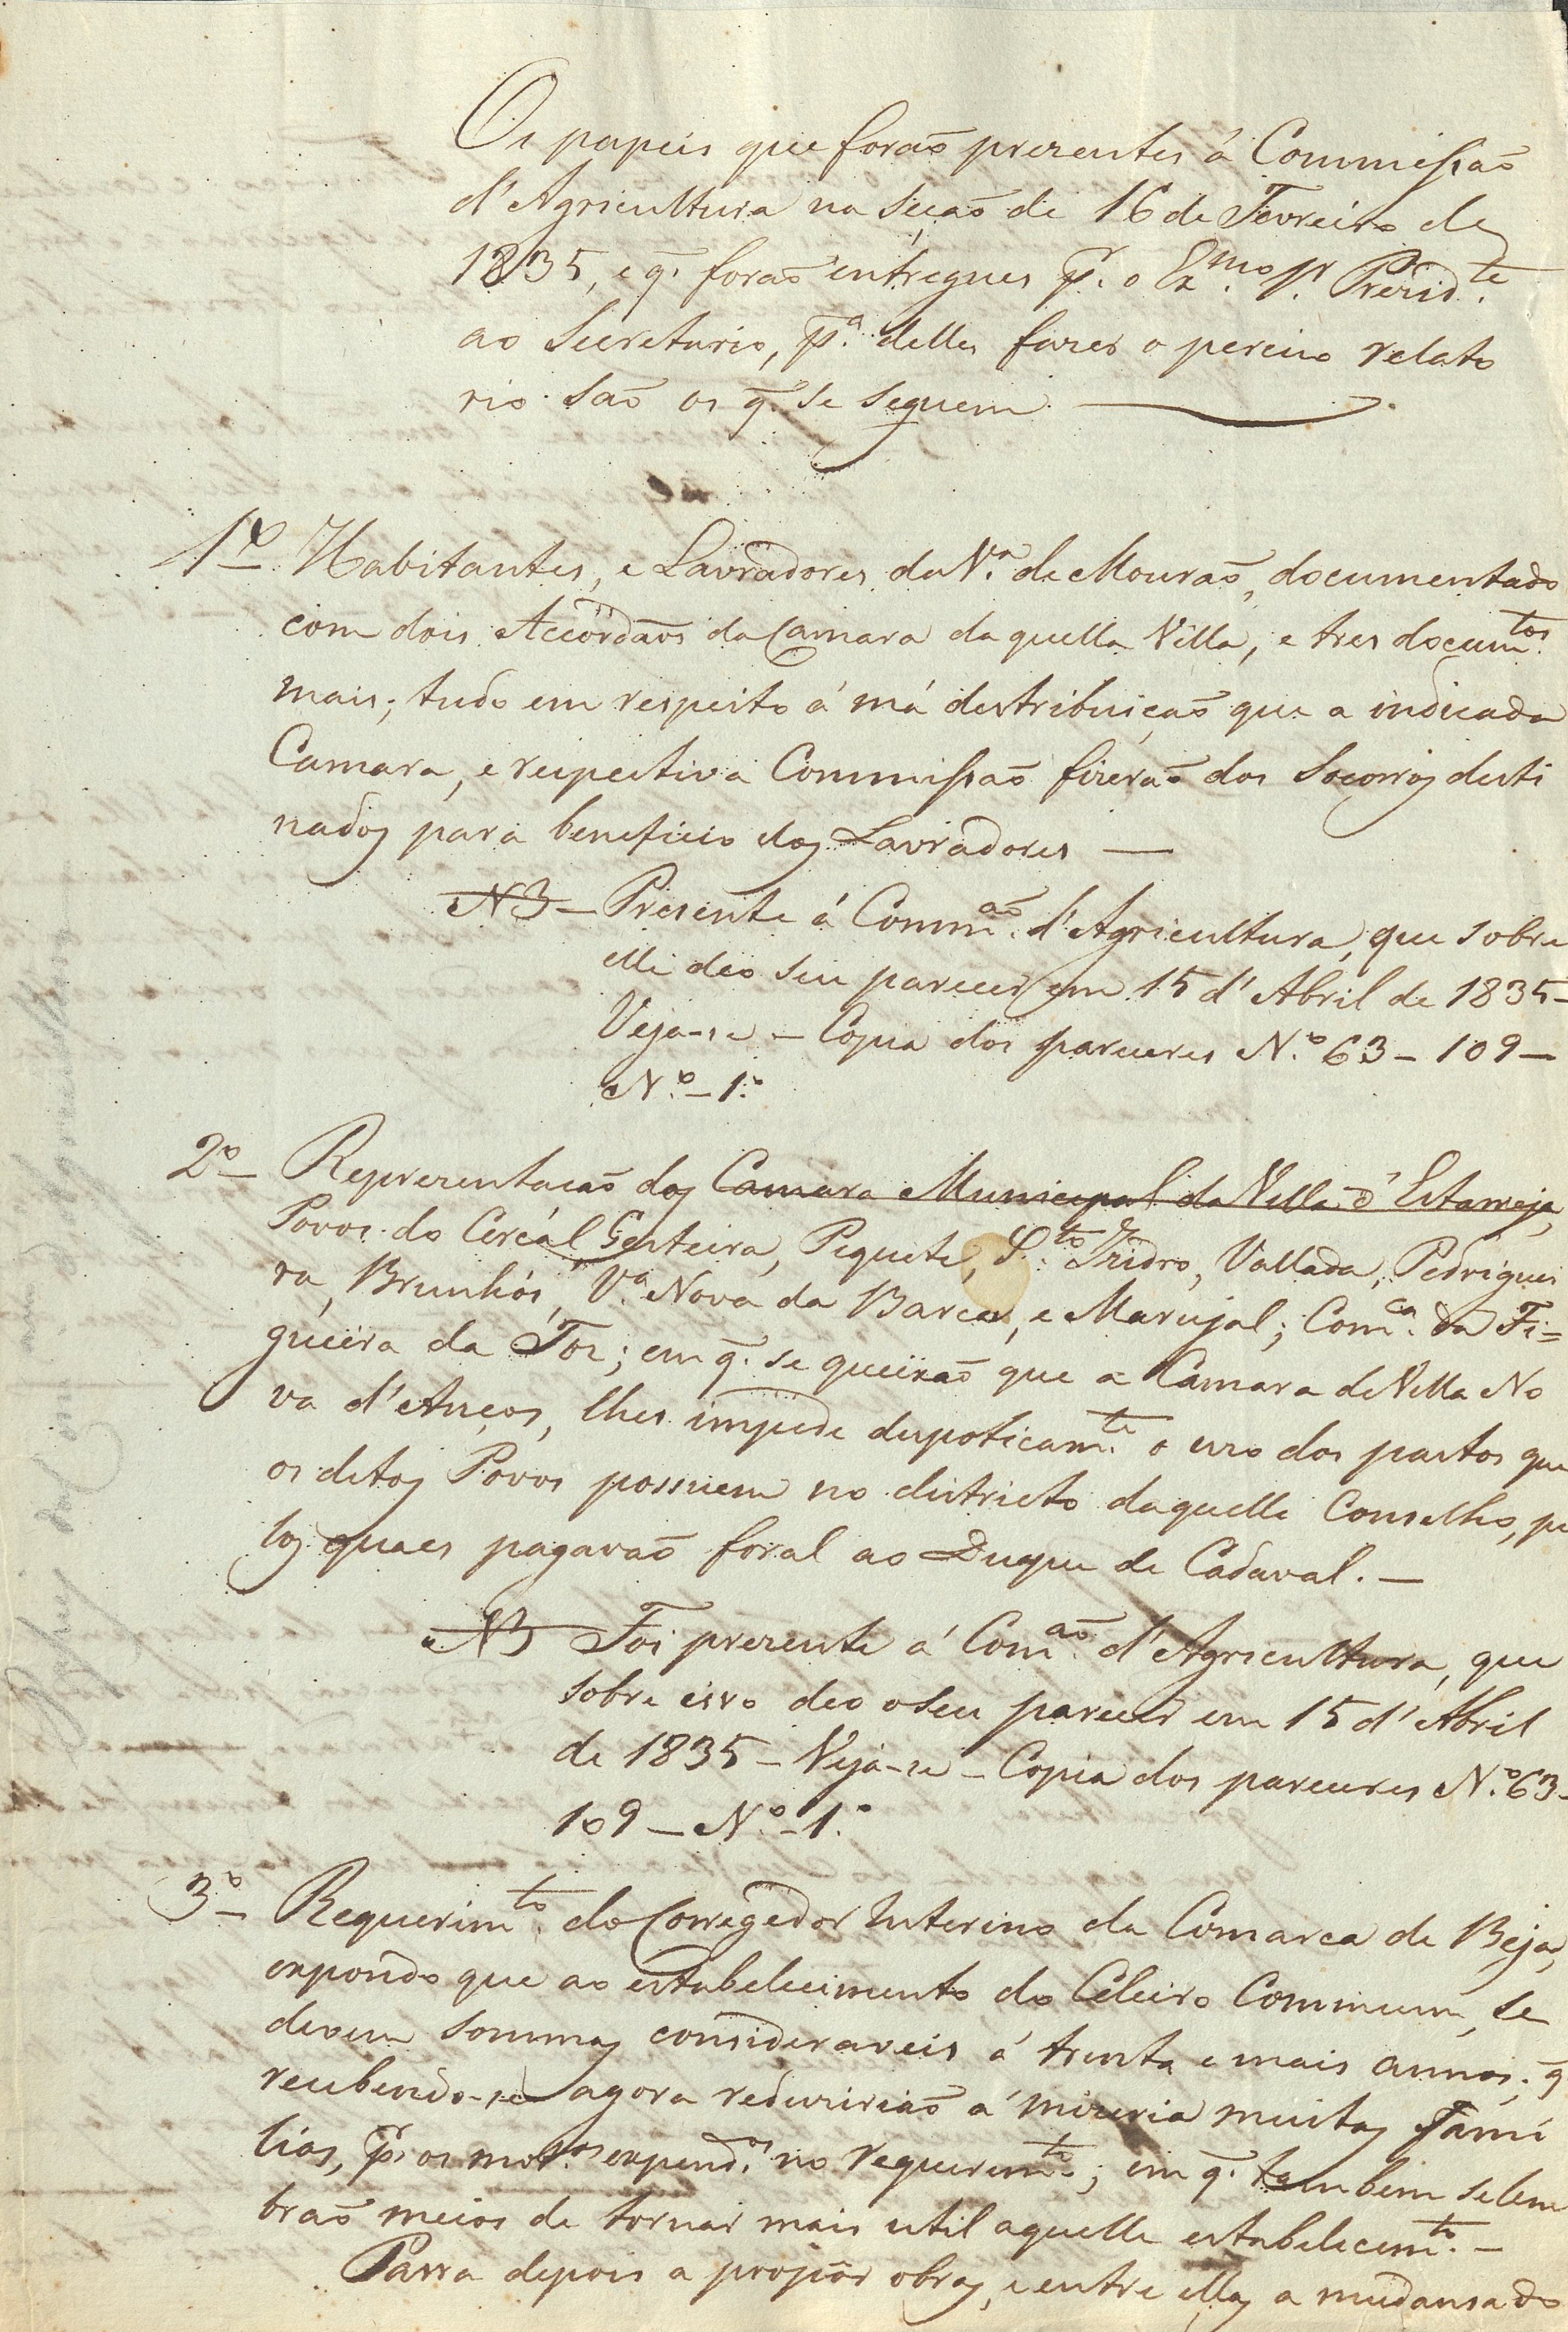 Os papeis que forão prezentes á Commissão
d'Agricultura na seção de 16 de Fevreiro de
1835, e q̃. forão entregues pr. o Exmo. Sr. Prezidte.
ao Secretario, pa. delles fazer o percizo relato
rio são os q̃. se seguem.
1º Habitantes, e Lavradores da Va. de Mourão, documentado
com dois Accordãos da Camara daquella Villa, e tres documtos.
mais; tudo em respeito á má destribuição que a indicada
Camara, e respectiva Commissão fizerão dos Socorros desti
nados para beneficio dos Lavradores —
NB — Presente á Commão. d'Agricultura, que sobre
elle deo seu parecer em 15 d'Abril de 1835 —
Veja-se — Copia dos pareceres N.º 63 — 109 —
N.º — 1.º
2º — Reprezentacão dos Camara Municipal da Villa d'Estarreja,
Povos do Cercál Gesteira, Piquete, Sto. Izidro, Vallada, Pedriguei
ra, Brunhós, Va. Nova da Barca, e Marujal; Comca. da Fi=
gueira da Foz; em q̃. se queixão que a Camara de Villa No
va d'Anços, lhes impede despoticamte. o uzo dos pastos que
os ditos Povos possuem no districto daquelle Conselho, pe
los quaes pagavão foral ao Duque de Cadaval. —
NB Foi prezente á Comão. d'Agricultura, que
sobre isso deo o seu parecer em 15 d'Abril
de 1835 — Veja-se — Copia dos pareceres N.º 63 —
109 — N.º — 1.º
3º — Requerimto. do Corregedor Interino da Comarca de Beja,
expondo que ao estabelecimento do Celeiro Commum, se
devem sommas consideraveis á trinta e mais annos; q̃
recebendo-se agora reduzirião á mizeria muitas Fami
lias, pr. os motos. expendos. no requerimto.; em q̃. tambem se lem
brão meios de tornar mais util aquelle estabelecemto. —
Passa depois a propôr obras, e entre ellas a mudansa do